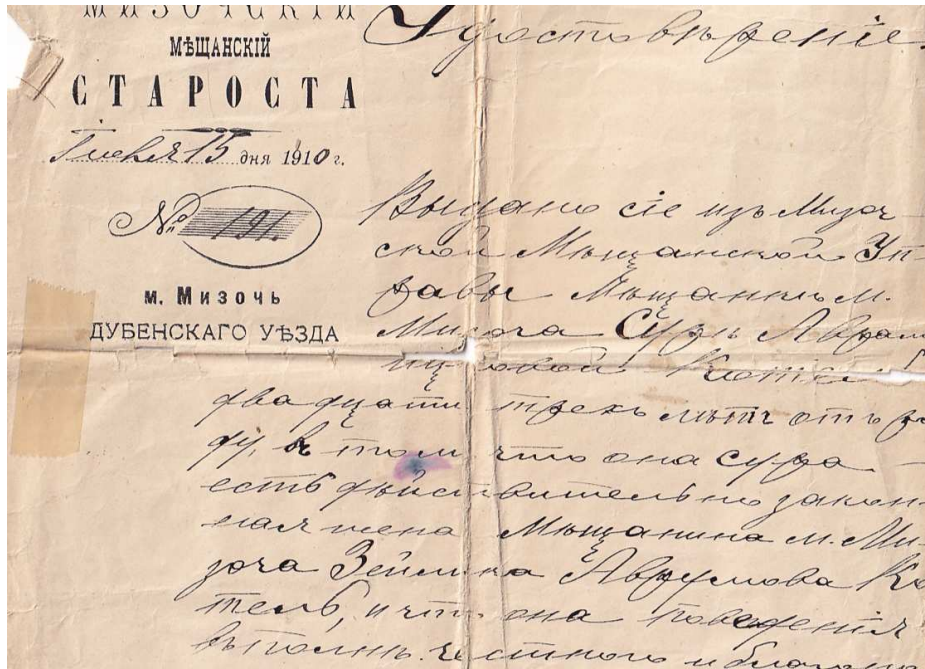 МИЗОЧСКІЙ
МѢЩАНСКІЙ
СТАРОСТА
15 дня 1910 г.
№ 191.
м. Мизочь
ДУБЕНСКАГО УѢЗДА
Удостовѣреніе.
Выдано сіе изъ Мизоч-
ской Мѣщанской Уп-
равы Мѣщанкѣ м.
Мизоча Сурѣ
двадцати трехъ лѣтъ отъ ро
ду, въ томъ что она Сура
есть дѣйствительно закон-
ная жена Мѣщанина м. Ми-
зоча Зейлика Аврумова Ко
тель, и что она поведенія
вполнѣ честнаго и